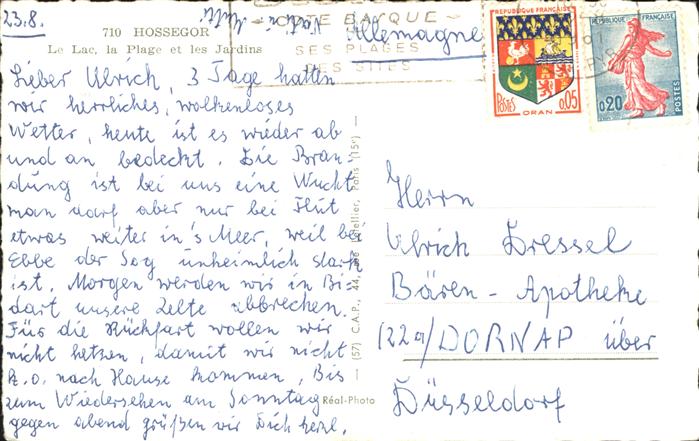 23.8.
710 HOSSEGOR
Le Lac, la Plage et les Jardins
CÔTE BASQUE
SES PLAGES
SES SITES
Allemagne
RÉPUBLIQUE FRANÇAISE
POSTES
0,05
ORAN
RÉPUBLIQUE FRANÇAISE
0,20
POSTES
Lieber Ulrich, 3 Tage hatten
wir herrliches, wolkenloses
Wetter, heute ist es wieder ab
und an bedeckt. Die Bran-
dung ist bei uns eine Wucht
man darf aber nur bei Flut
etwas weiter in's Meer, weil bei
Ebbe der Sog unheimlich stark
ist. Morgen werden wir in Bi-
dart unsere Zelte abbrechen.
Für die Rückfahrt wollen wir
nicht hetzen, damit wir nicht
k.o. nach Hause kommen, Bis
zum Wiedersehen am Sonntag
gegen abend grüßen wir Dich herzl.
(57) C.A.P., 44, Paris (15e)
Réal-Photo
Herrn
Ulrich Dressel
Bären-Apotheke
(22a) DORNAP über
Düsseldorf